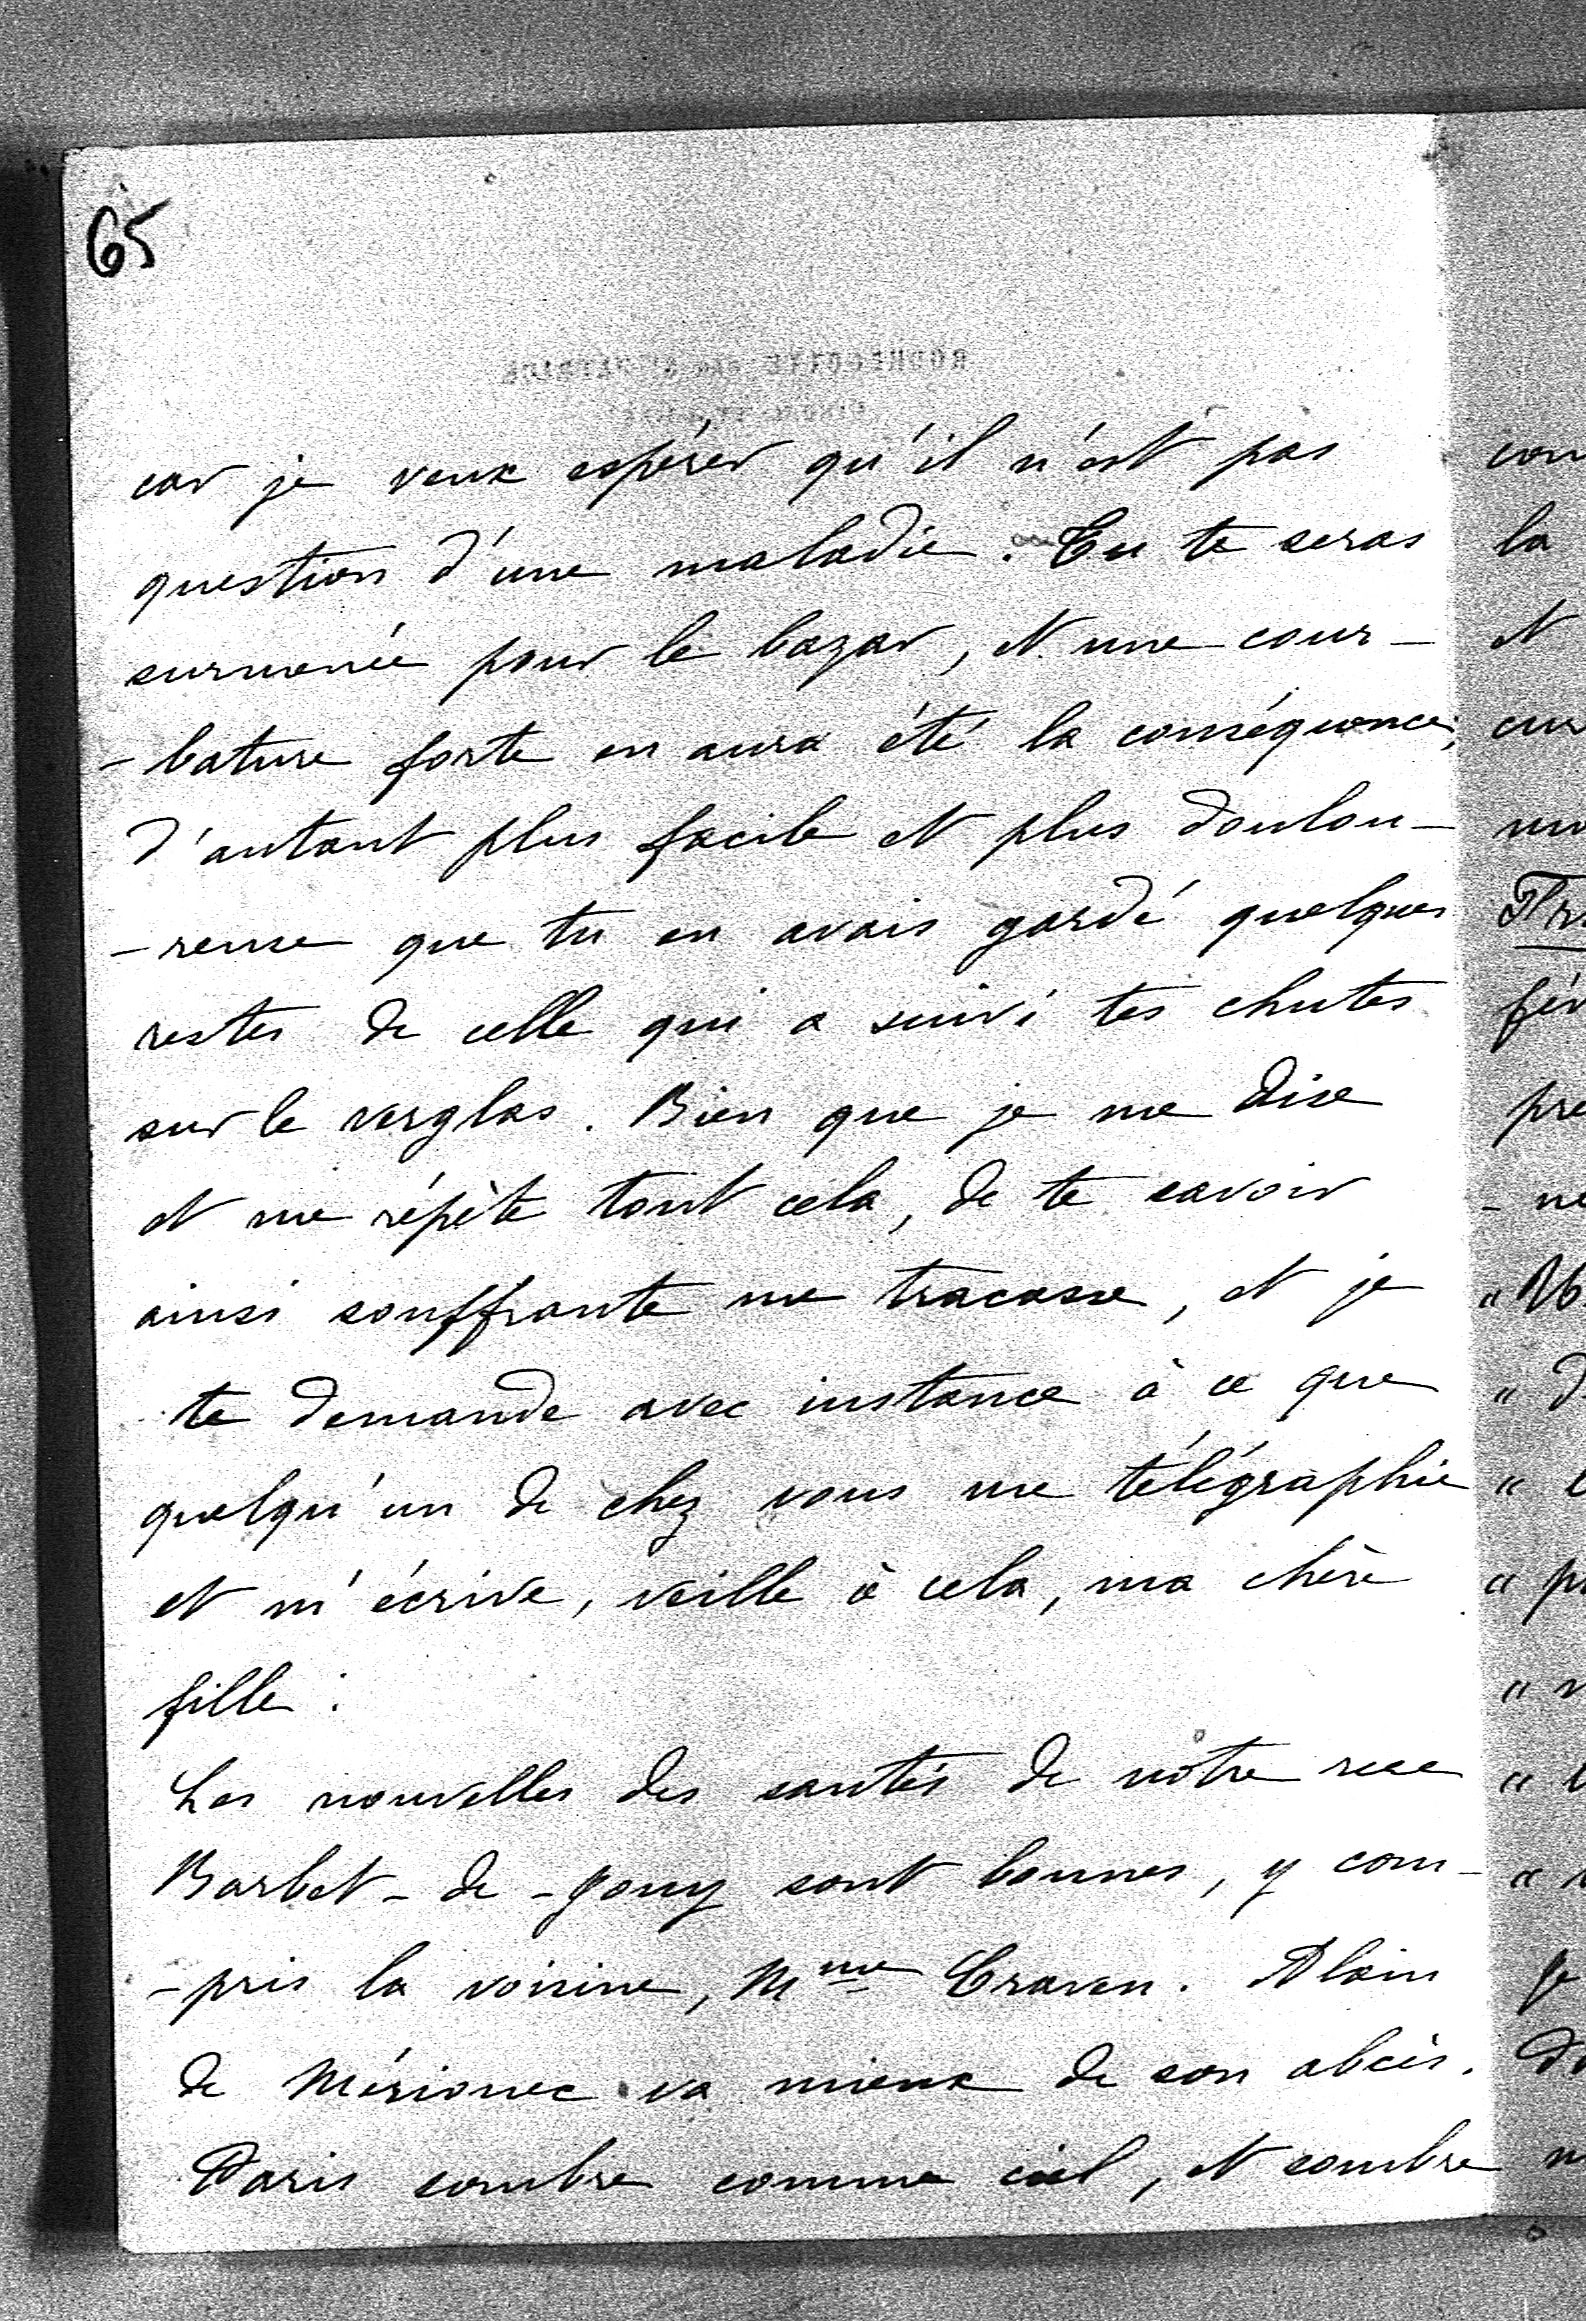 65
car je veux espérer qu'il n'est pas
question d'une maladie. Tu te seras
surmenée pour le bazar, et une cour-
-bature forte en aura été la conséquence;
d'autant plus facile et plus doulou-
-reuse que tu en avais gardé quelques
restes de celle qui a suivi tes chutes
sur le verglas. Bien que je me dise
et me répète tout cela, de te savoir
ainsi souffrante me tracasse, et je
te demande avec instance à ce que
quelqu'un de chez vous me télégraphie
et m'écrive, veille à cela, ma chère
fille.
Les nouvelles des santés de nôtre rue
Barbet-de-Jouy sont bonnes, y com-
-pris la voisine, Mme Craven. Alain
de Mérionec va mieux de son abcès.
Paris sombre comme ciel, et sombre